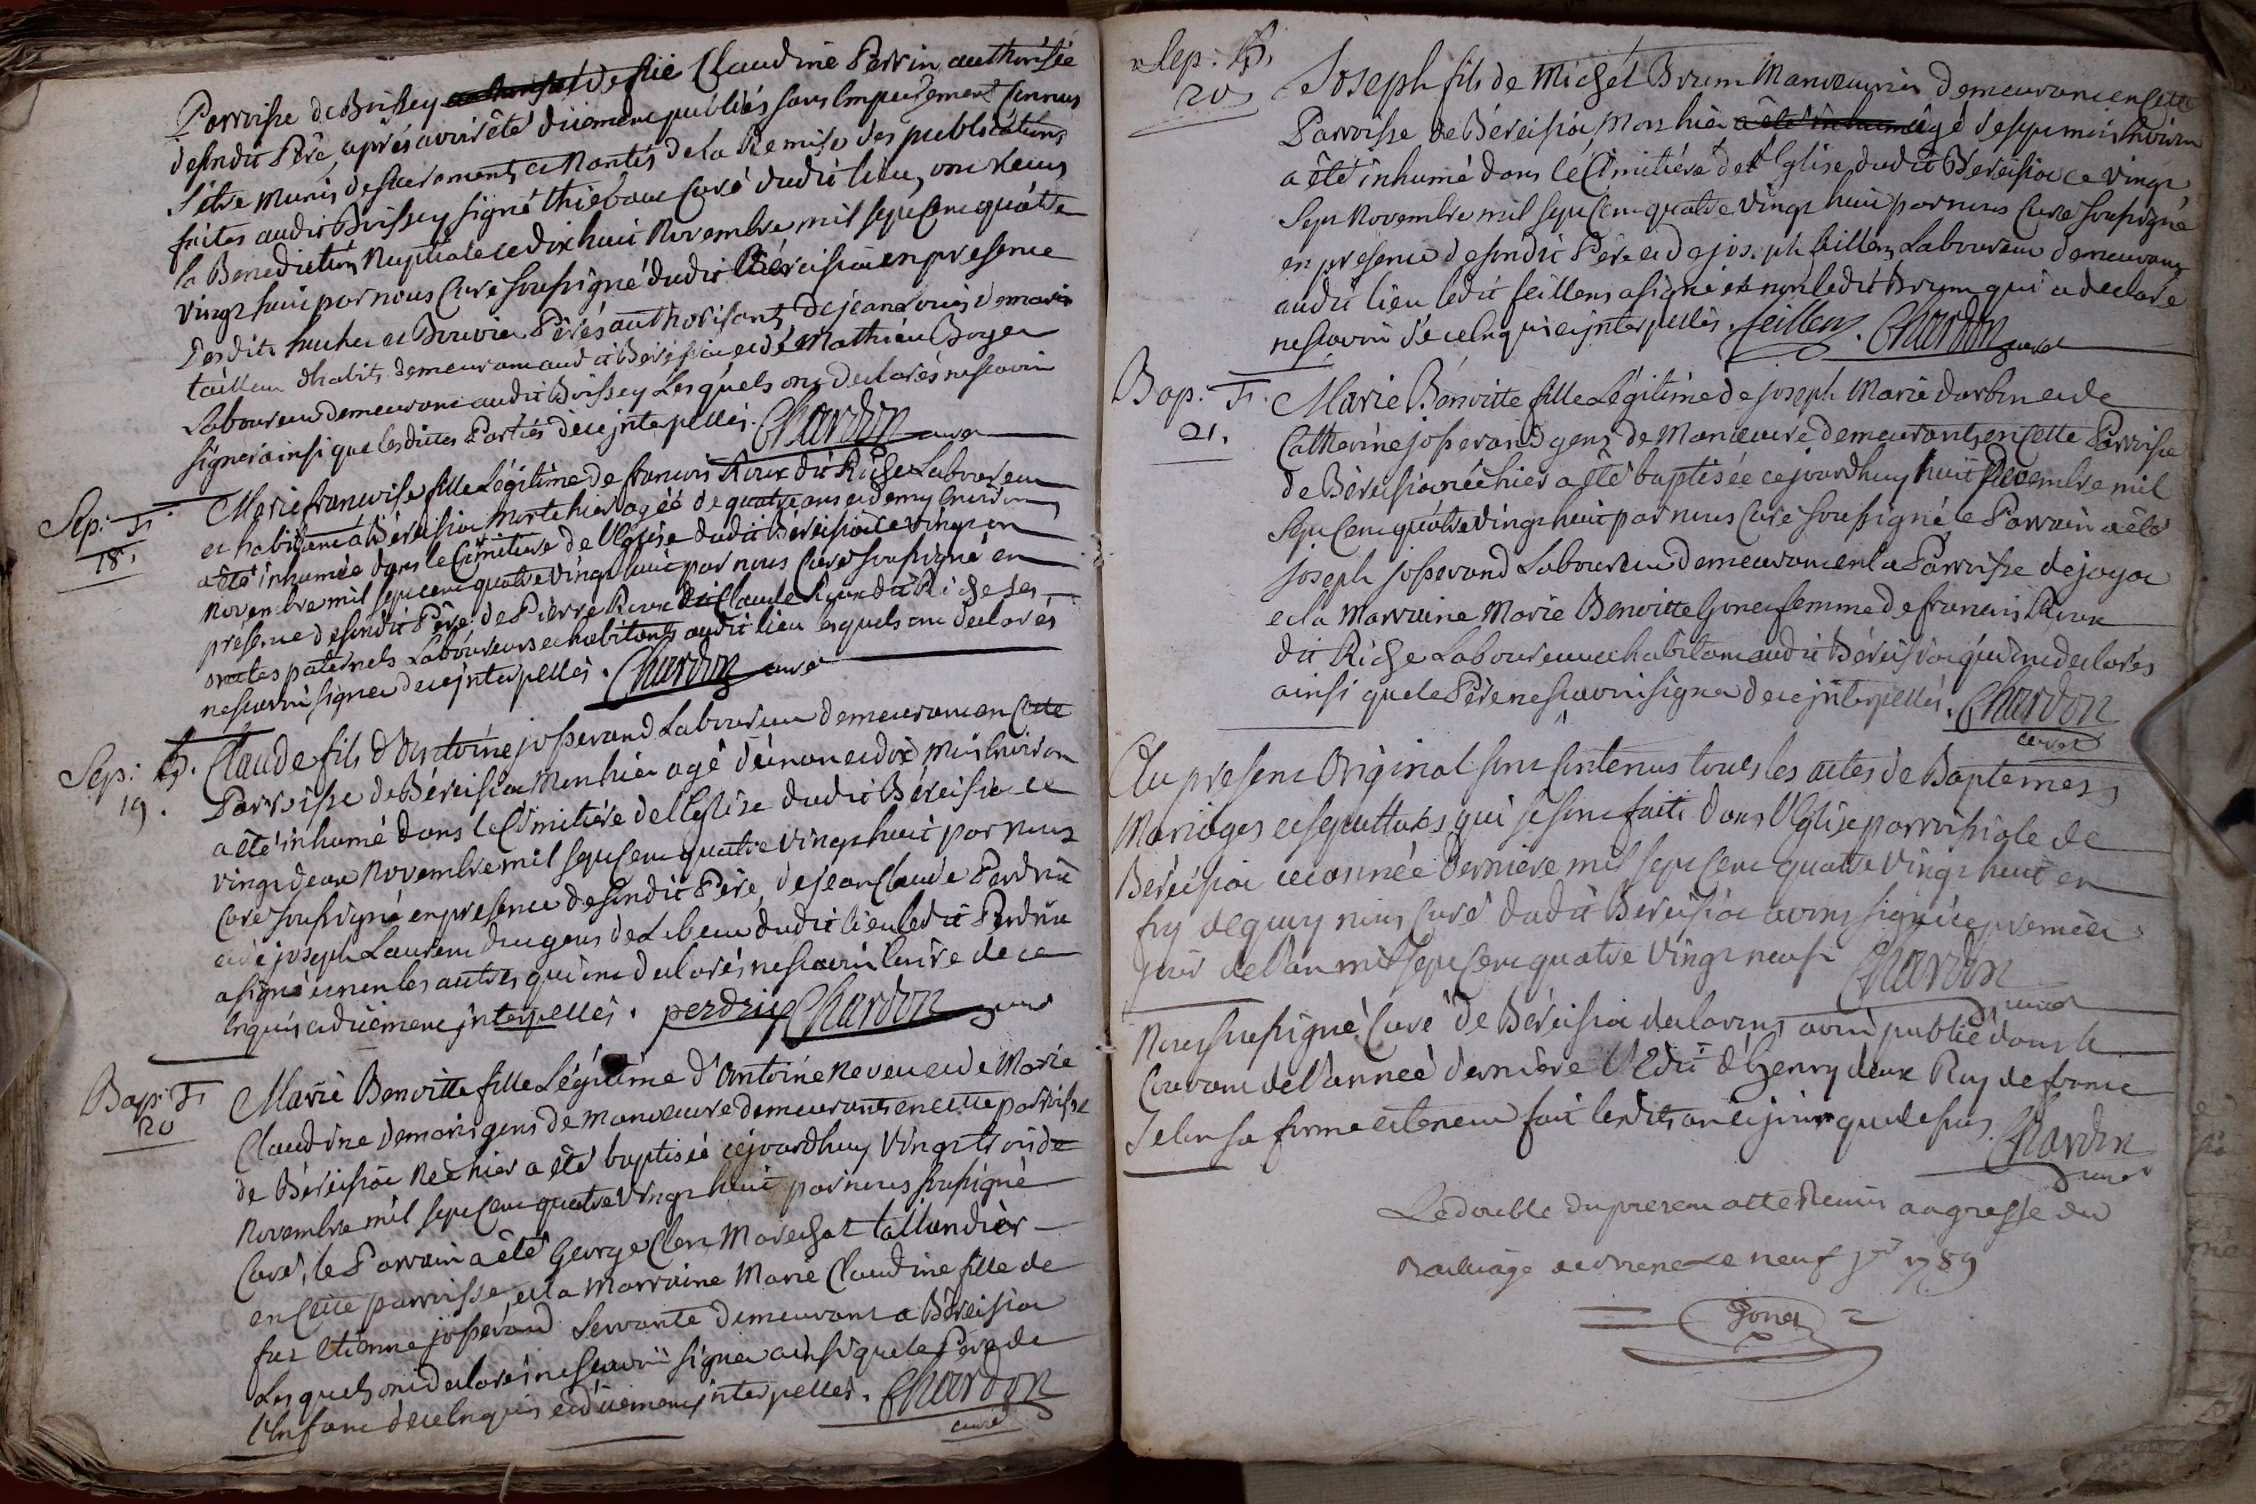 Parroisse de Boissey de fûe Claudine Perrin authorisée
desondit Père, après avoir été düement publiés sans Empeschement Connus
s'etre munis des sacrements, et Nantis de la Remise des publications
faites audit Boissey signé thiebaut Curé dudit lieu, ont Reçus
la Benediction Nuptiale ce dix huit Novembre mil sept Cent quatre
vingt huit par nous Curé soussigné dudit Béreisiat en presence
desdits et Bouvier Pères authorisants, de jean Louis demaris
tailleur d'habits demeurant audit Béreisiat et de Mathieu Boyer
Laboureur demeurant audit Boissey Lesquels ont declarés nescavoir
signer ainsi que lesdittes Parties de ce jnterpellés. Chardon curé
Sep: F.
18.
Marie francoise fille Légitime de francois Roux dit Riche Laboureur
et habitant à Béreisiat morte hier agée de quatre ans et demy Environ
a été inhumée dans le Cimitiere de l'Eglise dudit Béreisiat ce vingt un
Novembre mil sept cent quatre vingt huit par nous Curé soussigné en
presence desondit Père de Pierre Roux et Claude Roux dit Riche ses
oncles paternels Laboureurs et habitants audit lieu lesquels ont declarés
nescavoir signer de ce jnterpellés. Chardon curé
Sep: G.
19.
Claude fils d'Antoine josserand Laboureur demeurant en Cette
Parroisse de Béreisiat Mort hier agé d'un an et dix mois Environ
a été inhumé dans le Cimitière de l'Eglise dudit Béreisiat ce
vingt deux Novembre mil sept Cent quatre vingt huit par nous
Curé soussigné en presence desondit Père, de jean Claude Perdrix
et de joseph Laurent tous gens de Labeur dudit lieu ledit Perdrix
a signé et non les autres qui ont declarés nescavoir Ecrire de ce
Enquis et düement jnterpellés. perdrix Chardon curé
Bap: F.
20
Marie Benoitte fille Légitime d'Antoine Neveu et de Marie
Claudine demaris gens de manoeuvre demeurants en cette parroisse
de Béreisiat Née hier a été baptisée cejourdhuy vingt trois de
Novembre mil sept Cent quatre vingt huit par nous soussigné
Curé, le Parrain a été George Clerc Marechal tallandier
en Cette parroisse, et la marraine Marie Claudine fille de
fut etienne josserand servante demeurant a Béreisiat
Lesquels ont declarés nescavoir signer ainsi que le Père de
l'Enfant de ce Enquis et düement jnterpellés. Chardon
curé
Sep: G.
20
Joseph fils de Michel Brum Manoeuvrier demeurant en Cette
Parroisse de Béreisiat, Mort hier a été inhumé agé de sept mois Environ
a été inhumé dans le Cimitière de l'Eglise dudit Béreisiat ce vingt
sept Novembre mil sept Cent quatre vingt huit par nous Curé soussigné
en présence desondit Père et de joseph feillens Laboureur demeurant
audit lieu ledit feillens a signé et non ledit Brum qui a declaré
nescavoir de ce Enquis et jnterpellés. feillens. Chardon curé
Bap: F.
21.
Marie Benoitte fille Légitime de joseph Marie darbon et de
Catherine josserand gens de Manoeuvre demeurants en Cette Parroisse
de Béreisiat née hier a été baptisée ce jourdhuy huit Decembre mil
sept Cent quatre vingt huit par nous Curé soussigné le Parrain a été
joseph josserand Laboureur demeurant en la Parroisse de jayat
et la Marraine Marie Benoitte Gonet femme de francois Roux
dit Riche Laboureur et habitant audit Béreisiat qui ont declarés
ainsi que le Père nescavoir signer de ce jnterpellés. Chardon
curé
Au present Original sont Contenus tous les actes de Baptemes,
Mariages et sepultures qui se sont faits dans l'Eglise parroissiale de
Béreisiat ce l'année derniere mil sept Cent quatre vingt huit en
foy de quoy nous Curé dudit Béreisiat avons signé ce premier
jour de l'an mil sept Cent quatre vingt neuf. Chardon
curé
Nous soussigné Curé de Béreisiat declarons avoir publié dans le
Courant de l'année derniere l'Edit d'henry deux Roy de france
selon sa forme et teneur fait lesdits an et jour que dessus. Chardon
curé
Le double du present acte Remis au greffe du
Bailliage de Bresse Le neuf jer 1789
Gonet